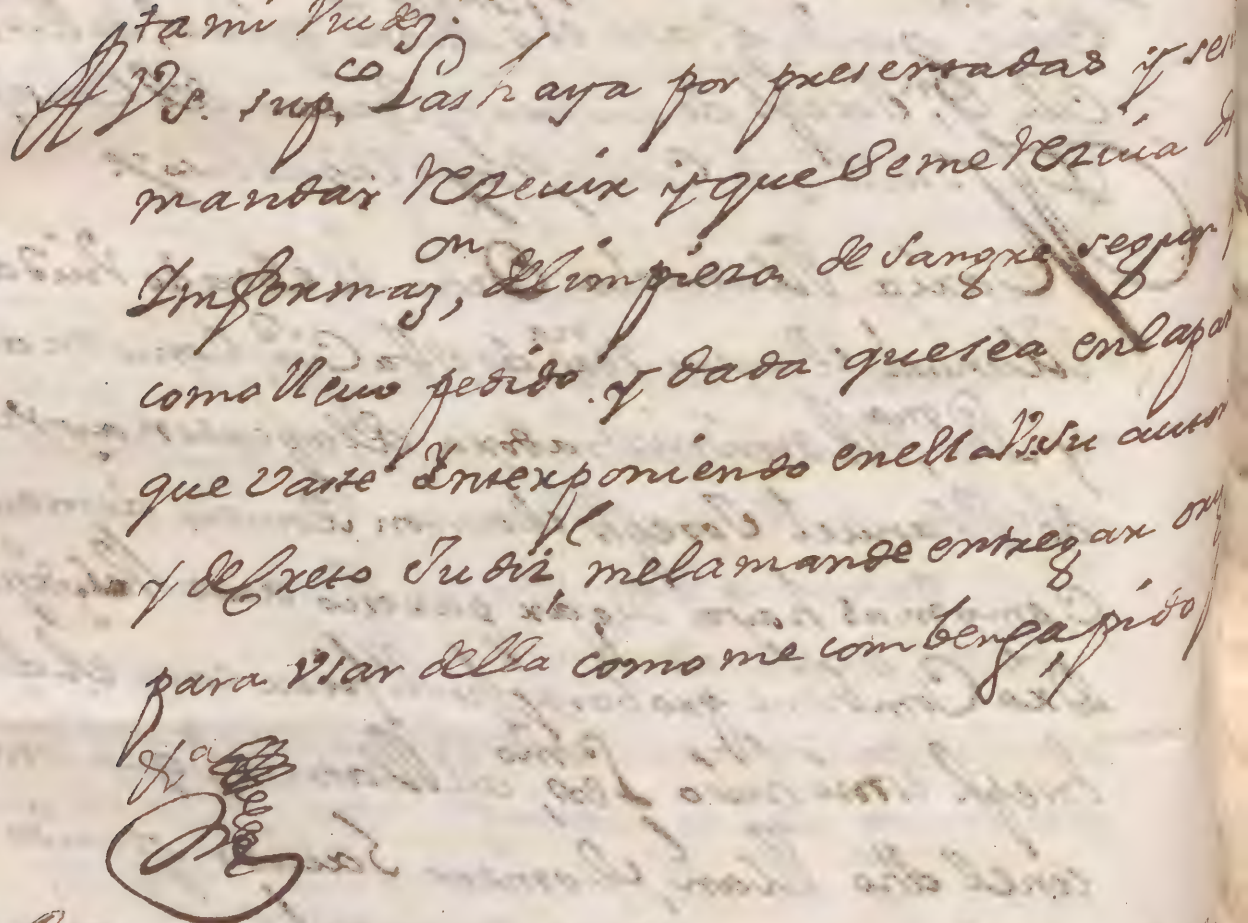 ta mi
A Vs. sup.co Las haya por presentadas y se
mandar Rezeuir y que se me Reziua
Informaz,on de limpieza de sangre segun
como lleuo pedido y dada que sea en la par
que vaste Interponiendo en ella Vs. su autori
y deCreto Judiz,l me la mande entregar
para vsar della como me combenga, pido